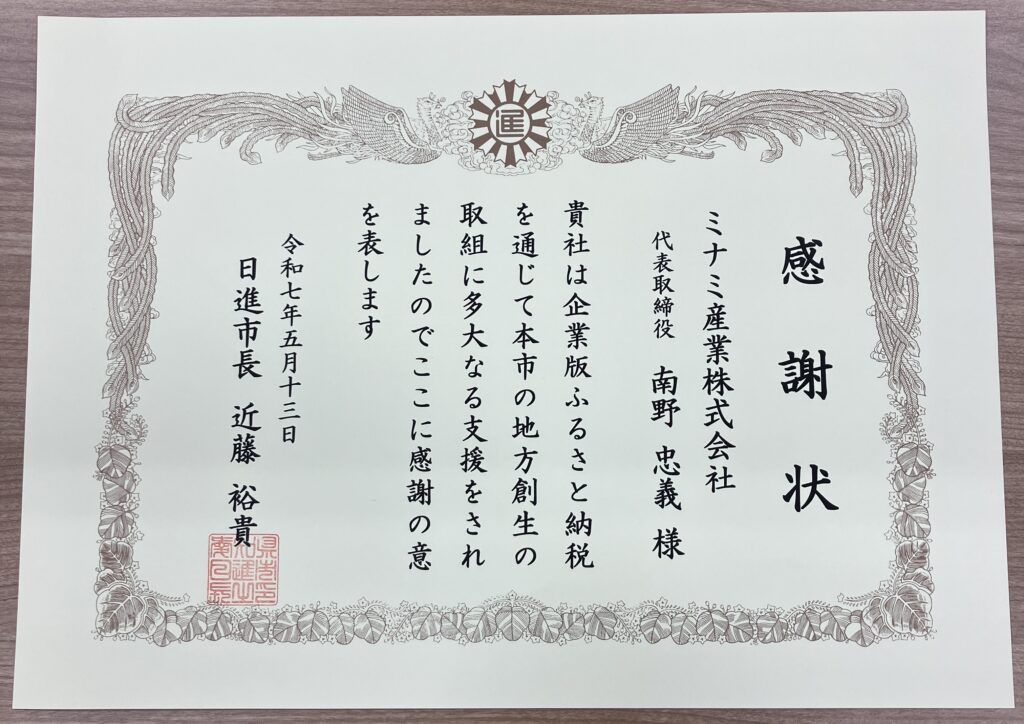 感謝状
ミナミ産業株式会社
代表取締役 南野 忠義 様
貴社は企業版ふるさと納税
を通じて本市の地方創生の
取組に多大なる支援をされ
ましたのでここに感謝の意
を表します
令和七年五月十三日
日進市長 近藤 裕貴
進